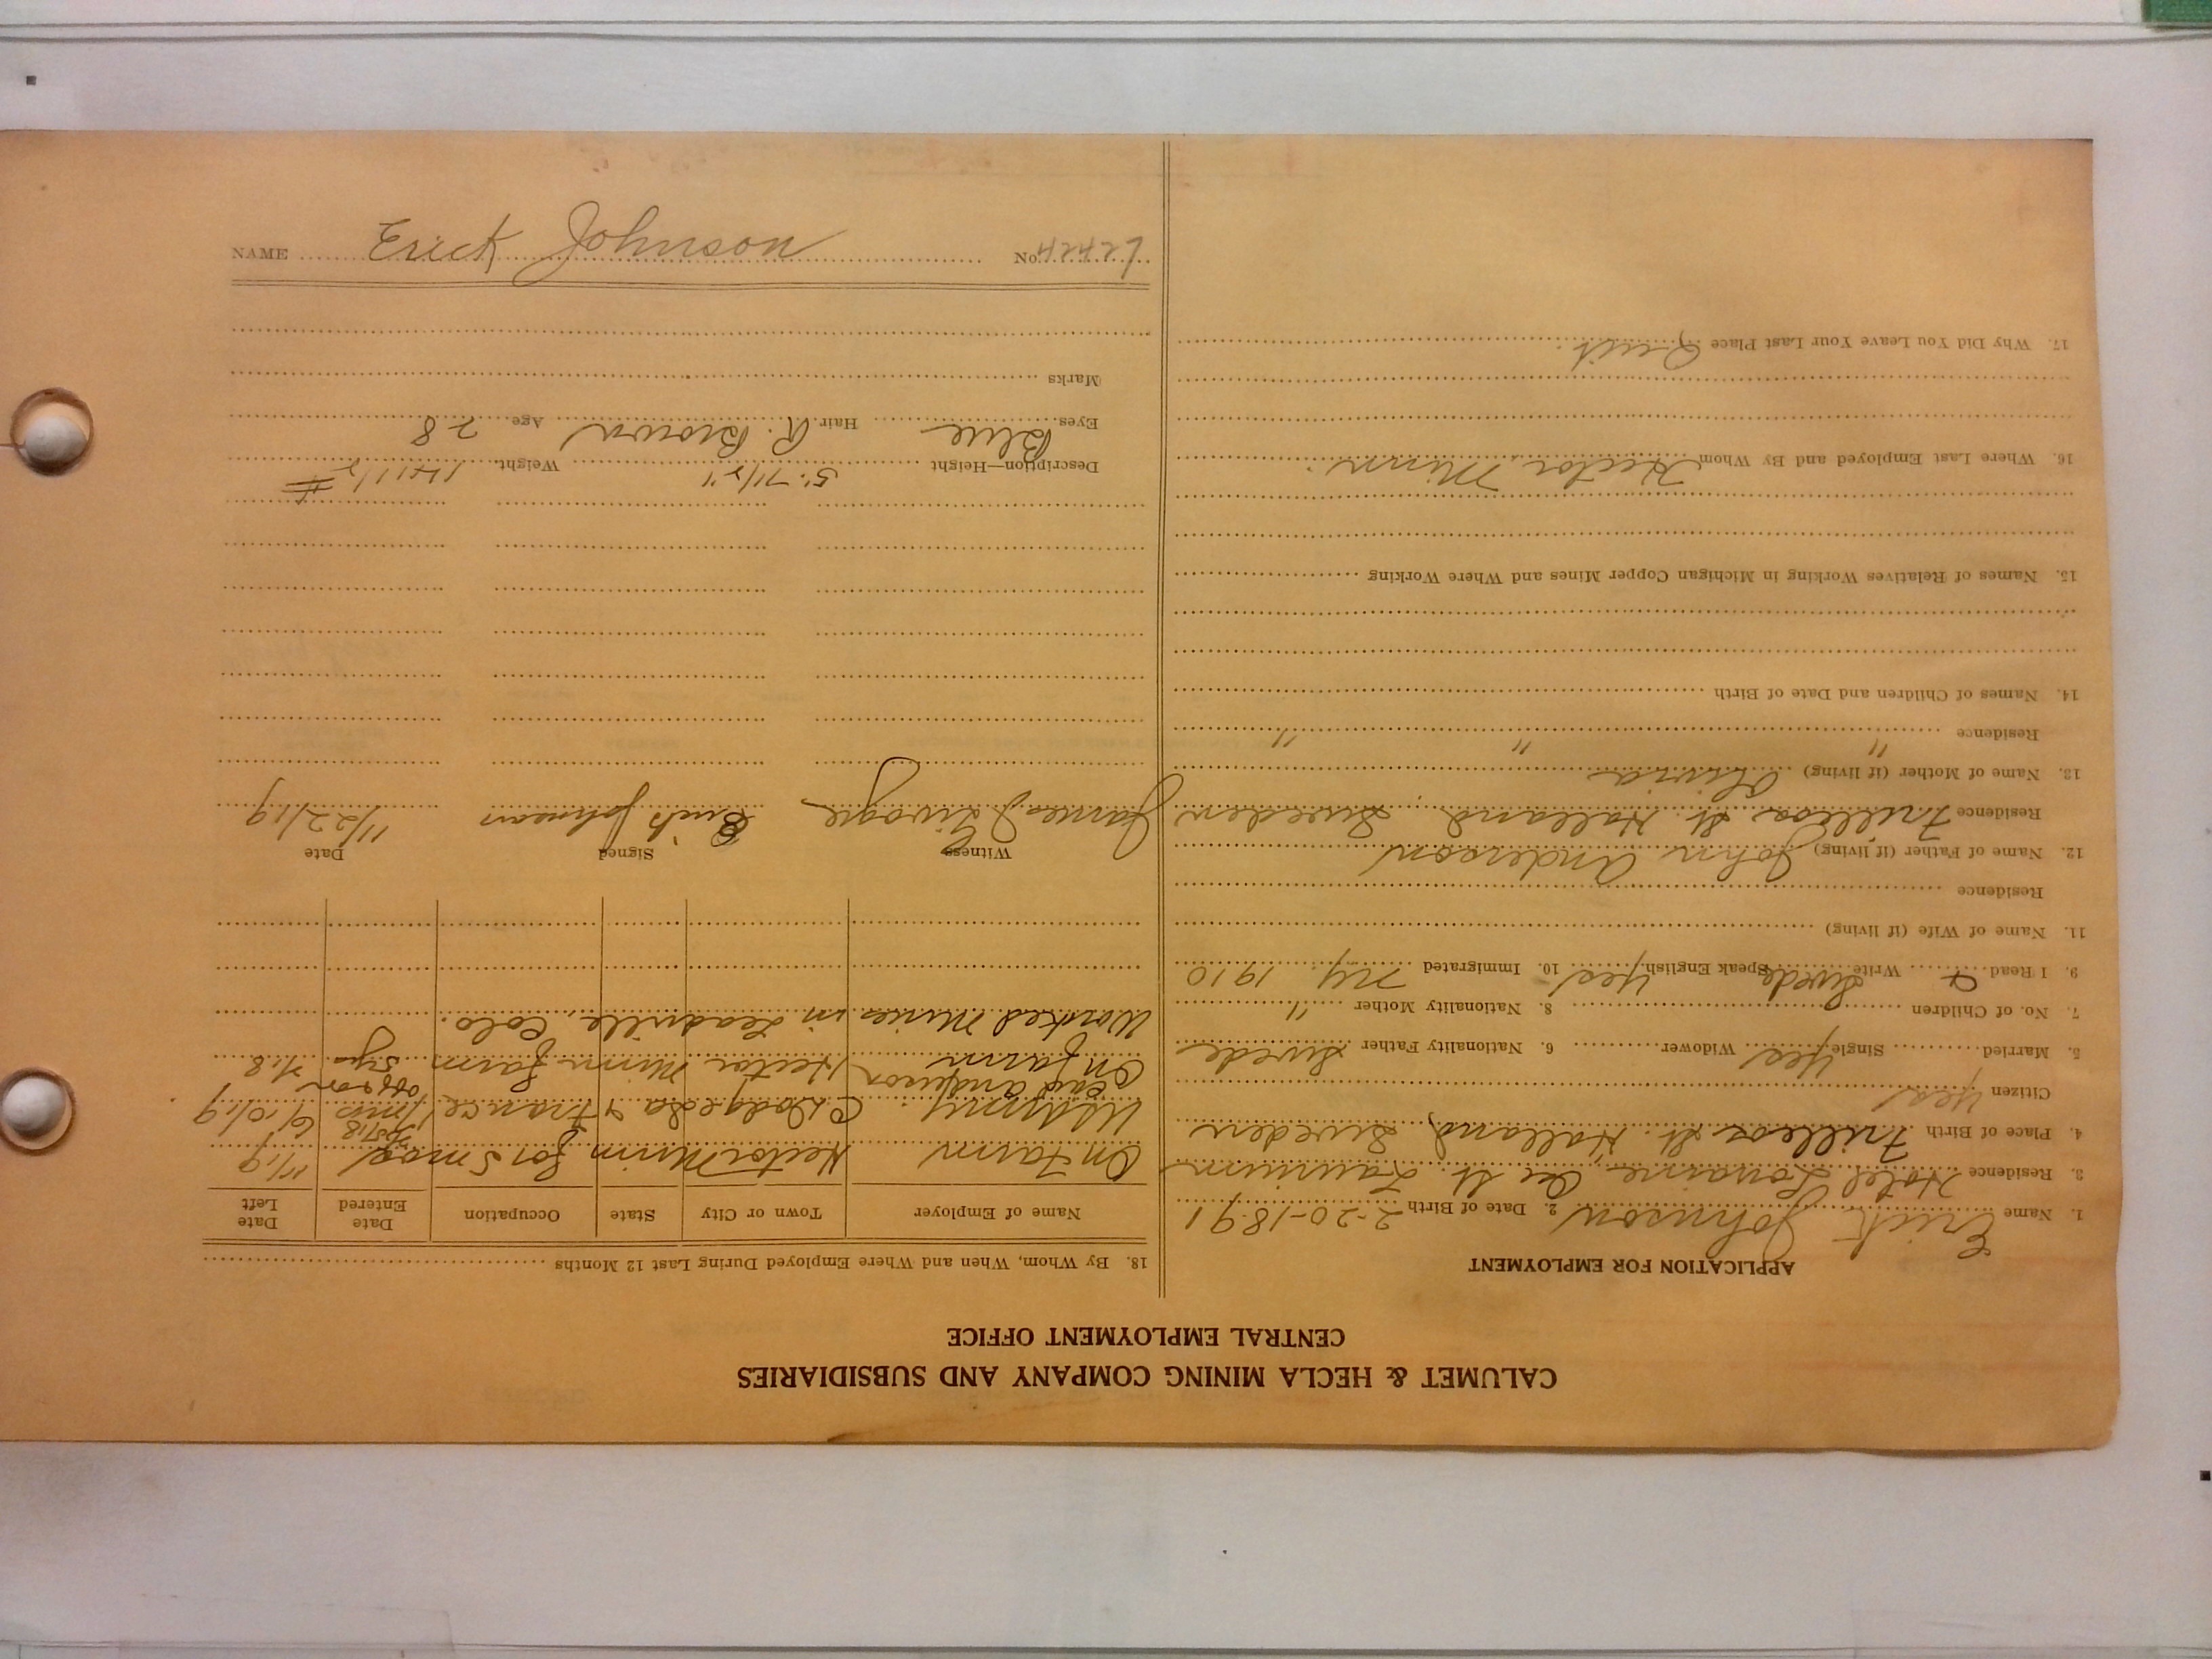 CALUMET & HECLA MINING COMPANY AND SUBSIDIARIES
CENTRAL EMPLOYMENT OFFICE
APPLICATION FOR EMPLOYMENT
1. Name Erick Johnson 2. Date of Birth 2-20-1891
3. Residence Hotel Lorraine Ave St. Laurium
4. Place of Birth St. Halland, Sweden
Citizen Yes
5. Married Single Yes Widower 6. Nationality Father Swede
7. No. of Children 8. Nationality Mother "
9. I Read & Write Swede Speak English Yes 10. Immigrated NY 1910
11. Name of Wife (if living)
Residence
12. Name of Father (if living) John Anderson
Residence St. Halland, Sweden
13. Name of Mother (if living) Olivia
Residence " " "
14. Names of Children and Date of Birth
15. Names of Relatives Working in Michigan Copper Mines and Where Working
16. Where Last Employed and By Whom Hector, Minn.
17. Why Did You Leave Your Last Place Quit.
18. By Whom, When and Where Employed During Last 12 Months
Name of Employer Town or City State Occupation Date Entered Date Left
On Farm Hector Minn for 5 mos 11/19
US Army. Camp Dodge & France 6/10/19
On farm Hector Minn farm 5 yrs 7/18
Worked Mines in Leadville, Colo.
Witness Signed Date
James Erick Johnson 11/22/19
Description—Height 5' 7 1/2" Weight 141 1/2 #
Eyes Blue Hair R. Brown Age 28
Marks
NAME Erick Johnson No.